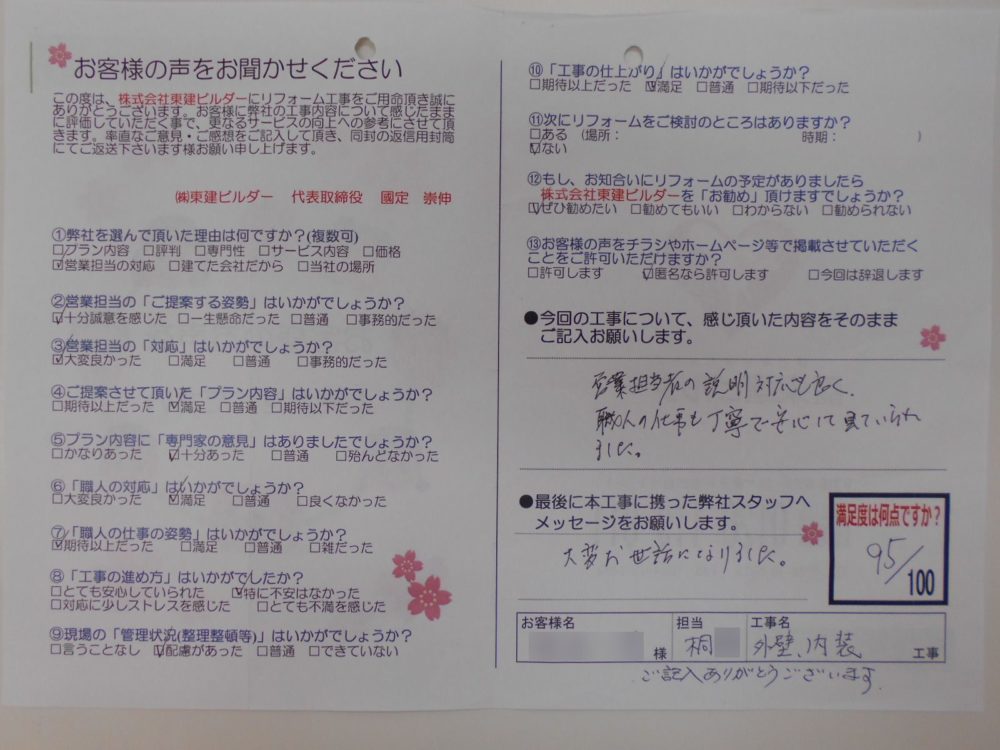 お客様の声をお聞かせください
この度は、株式会社東建ビルダーにリフォーム工事をご用命頂き誠に
ありがとうございます。お客様に弊社の工事内容について感じたまま
に評価していただく事で、更なるサービスの向上への参考にさせて頂
きます。率直なご意見・ご感想をご記入して頂き、同封の返信用封筒
にてご返送下さいます様お願い申し上げます。
㈱東建ビルダー 代表取締役 國定 崇伸
①弊社を選んで頂いた理由は何ですか?(複数可)
□プラン内容 □評判 □専門性 □サービス内容 □価格
☑営業担当の対応 □建てた会社だから □当社の場所
②営業担当の「ご提案する姿勢」はいかがでしょうか?
☑十分誠意を感じた □一生懸命だった □普通 □事務的だった
③営業担当の「対応」はいかがでしょうか?
☑大変良かった □満足 □普通 □事務的だった
④ご提案させて頂いた「プラン内容」はいかがでしょうか?
□期待以上だった ☑満足 □普通 □期待以下だった
⑤プラン内容に「専門家の意見」はありましたでしょうか?
□かなりあった ☑十分あった □普通 □殆んどなかった
⑥「職人の対応」はいかがでしょうか?
□大変良かった ☑満足 □普通 □良くなかった
⑦「職人の仕事の姿勢」はいかがでしょうか?
☑期待以上だった □満足 □普通 □雑だった
⑧「工事の進め方」はいかがでしたか?
□とても安心していられた ☑特に不安はなかった
□対応に少しストレスを感じた □とても不満を感じた
⑨現場の「管理状況(整理整頓等)」はいかがでしょうか?
□言うことなし ☑配慮があった □普通 □できていない
⑩「工事の仕上がり」はいかがでしょうか?
□期待以上だった ☑満足 □普通 □期待以下だった
⑪次にリフォームをご検討のところはありますか?
□ある (場所: 時期: )
☑ない
⑫もし、お知合いにリフォームの予定がありましたら
株式会社東建ビルダーを「お勧め」頂けますでしょうか?
☑ぜひ勧めたい □勧めてもいい □わからない □勧められない
⑬お客様の声をチラシやホームページ等で掲載させていただく
ことをご許可いただけますか?
□許可します ☑匿名なら許可します □今回は辞退します
●今回の工事について、感じ頂いた内容をそのまま
ご記入お願いします。
営業担当者の説明対応も良く、
職人の仕事も丁寧で安心して見ていられ
ました。
●最後に本工事に携った弊社スタッフへ
メッセージをお願いします。
大変お世話になりました。
満足度は何点ですか?
95/100
お客様名 様
担当 桐
工事名 外壁、内装 工事
ご記入ありがとうございます。